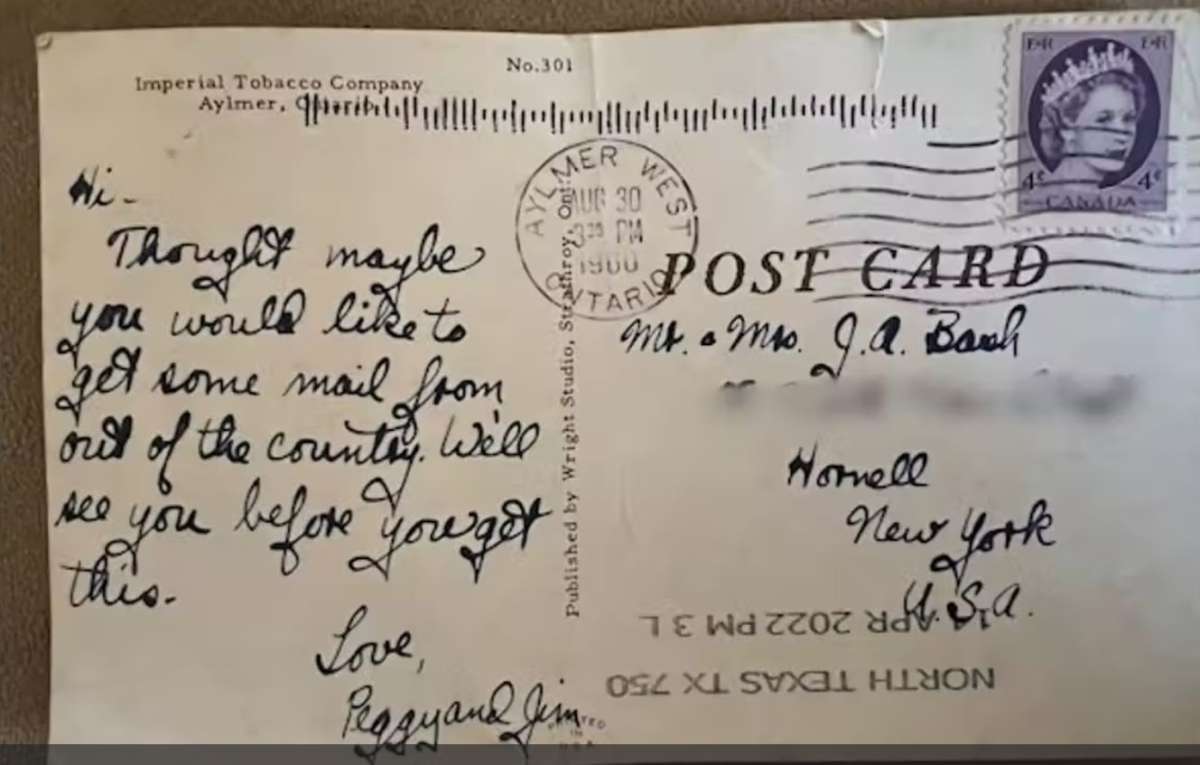 No.301
Imperial Tobacco Company
Aylmer, Ontario
E II R E II R
4¢ 4¢
CANADA
AYLMER WEST
AUG 30
PM
1960
ONTARIO
POST CARD
Published by Wright Studio, Strathroy, Ont.
Hi-
Thought maybe
you would like to
get some mail from
out of the country. We'll
see you before you get
this.
Love,
Peggy and Jim
Mr. & Mrs. J.A. Bash
Hornell
New York
U.S.A.
NORTH TEXAS TX 750
APR 2022 PM 3 L